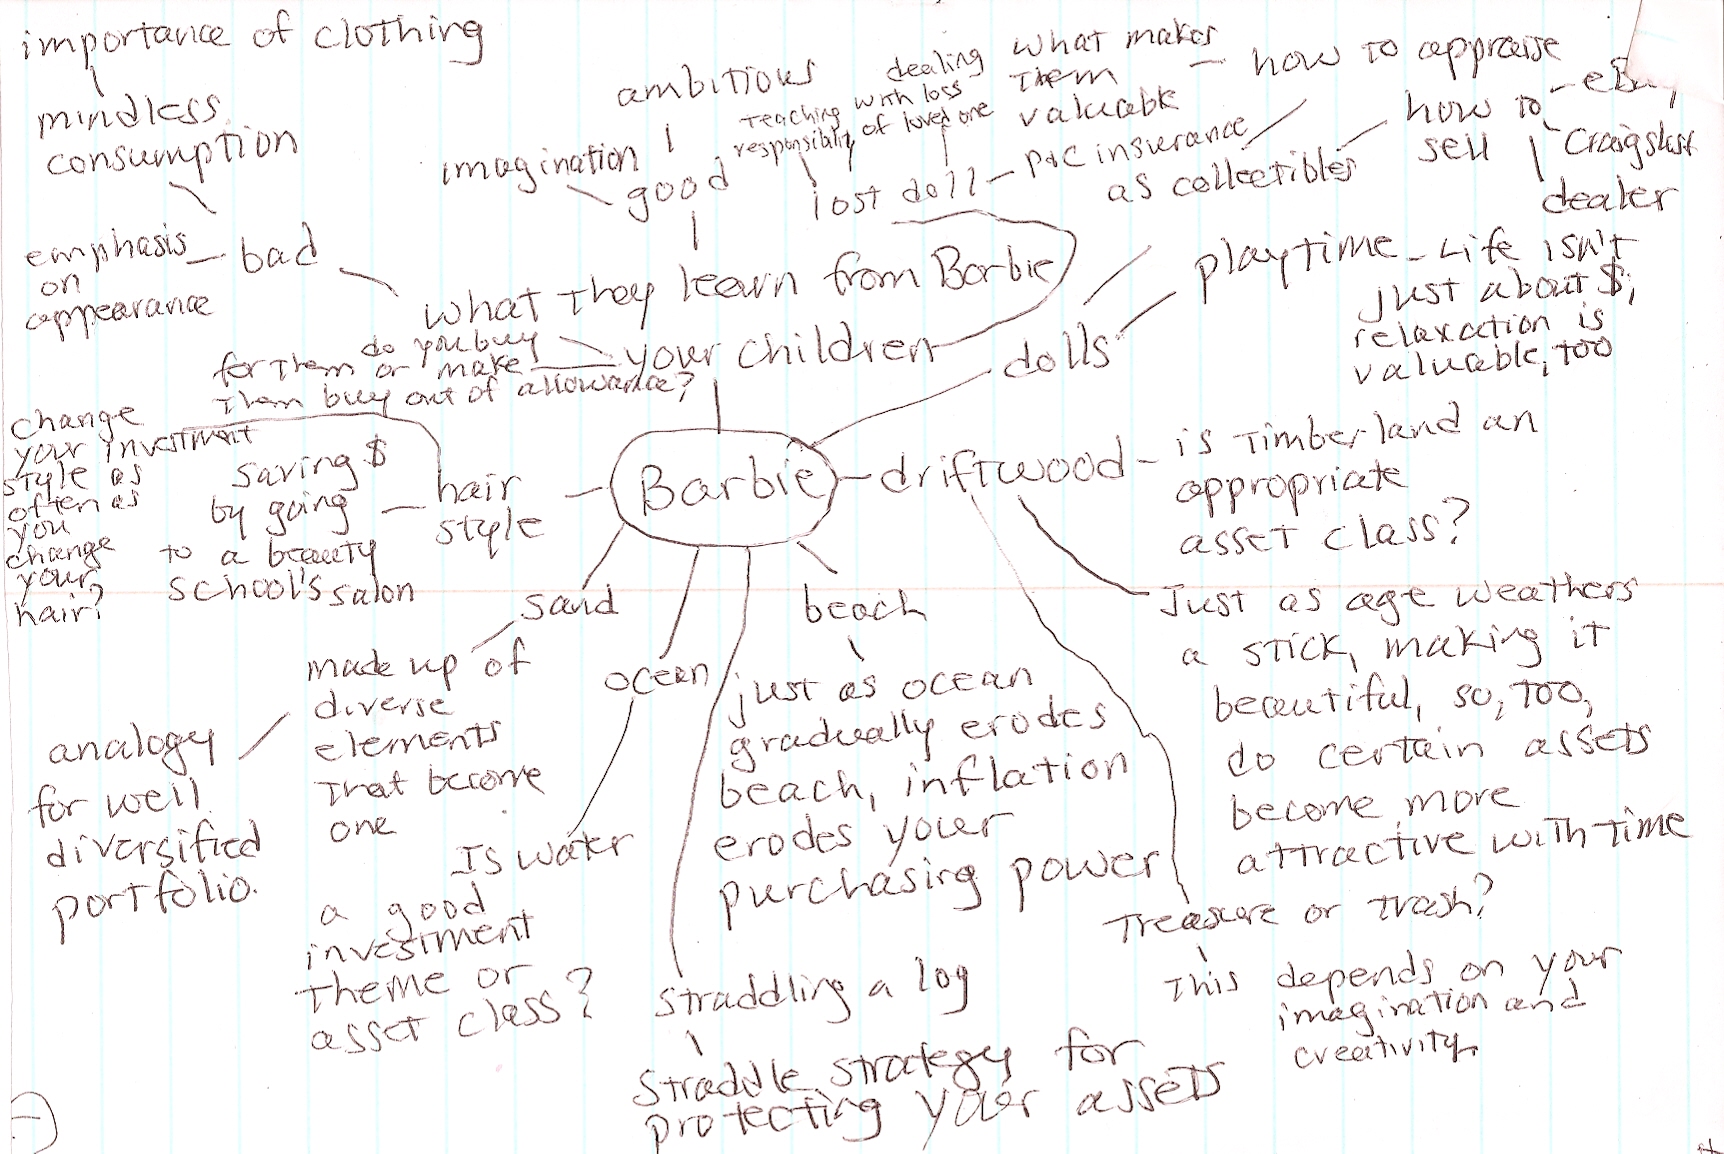 importance of clothing
mindless
consumption
emphasis
on
appearance
bad
imagination
ambitious
good
what they learn from Barbie
teaching
responsibility
dealing
with loss
of loved one
lost doll
P&C insurance
what makes
them
valuable
how to appraise
as collectibles
how to
sell
eBay
Craigslist
dealer
dolls
playtime - Life isn't
just about $;
relaxation is
valuable, too
your children
do you buy
for them or make
them buy out of allowance?
change
your investment
style as
often as
you
change
your
hair?
saving $
by going
to a beauty
school's salon
hair
style
Barbie
driftwood
is timberland an
appropriate
asset class?
Just as age weathers
a stick, making it
beautiful, so, too,
do certain assets
become more
attractive with time
Treasure or trash?
This depends on your
imagination and
creativity.
sand
made up of
diverse
elements
that become
one
analogy
for well
diversified
portfolio.
ocean
Is water
a good
investment
theme or
asset class?
beach
just as ocean
gradually erodes
beach, inflation
erodes your
purchasing power
straddling a log
Straddle strategy for
protecting your assets